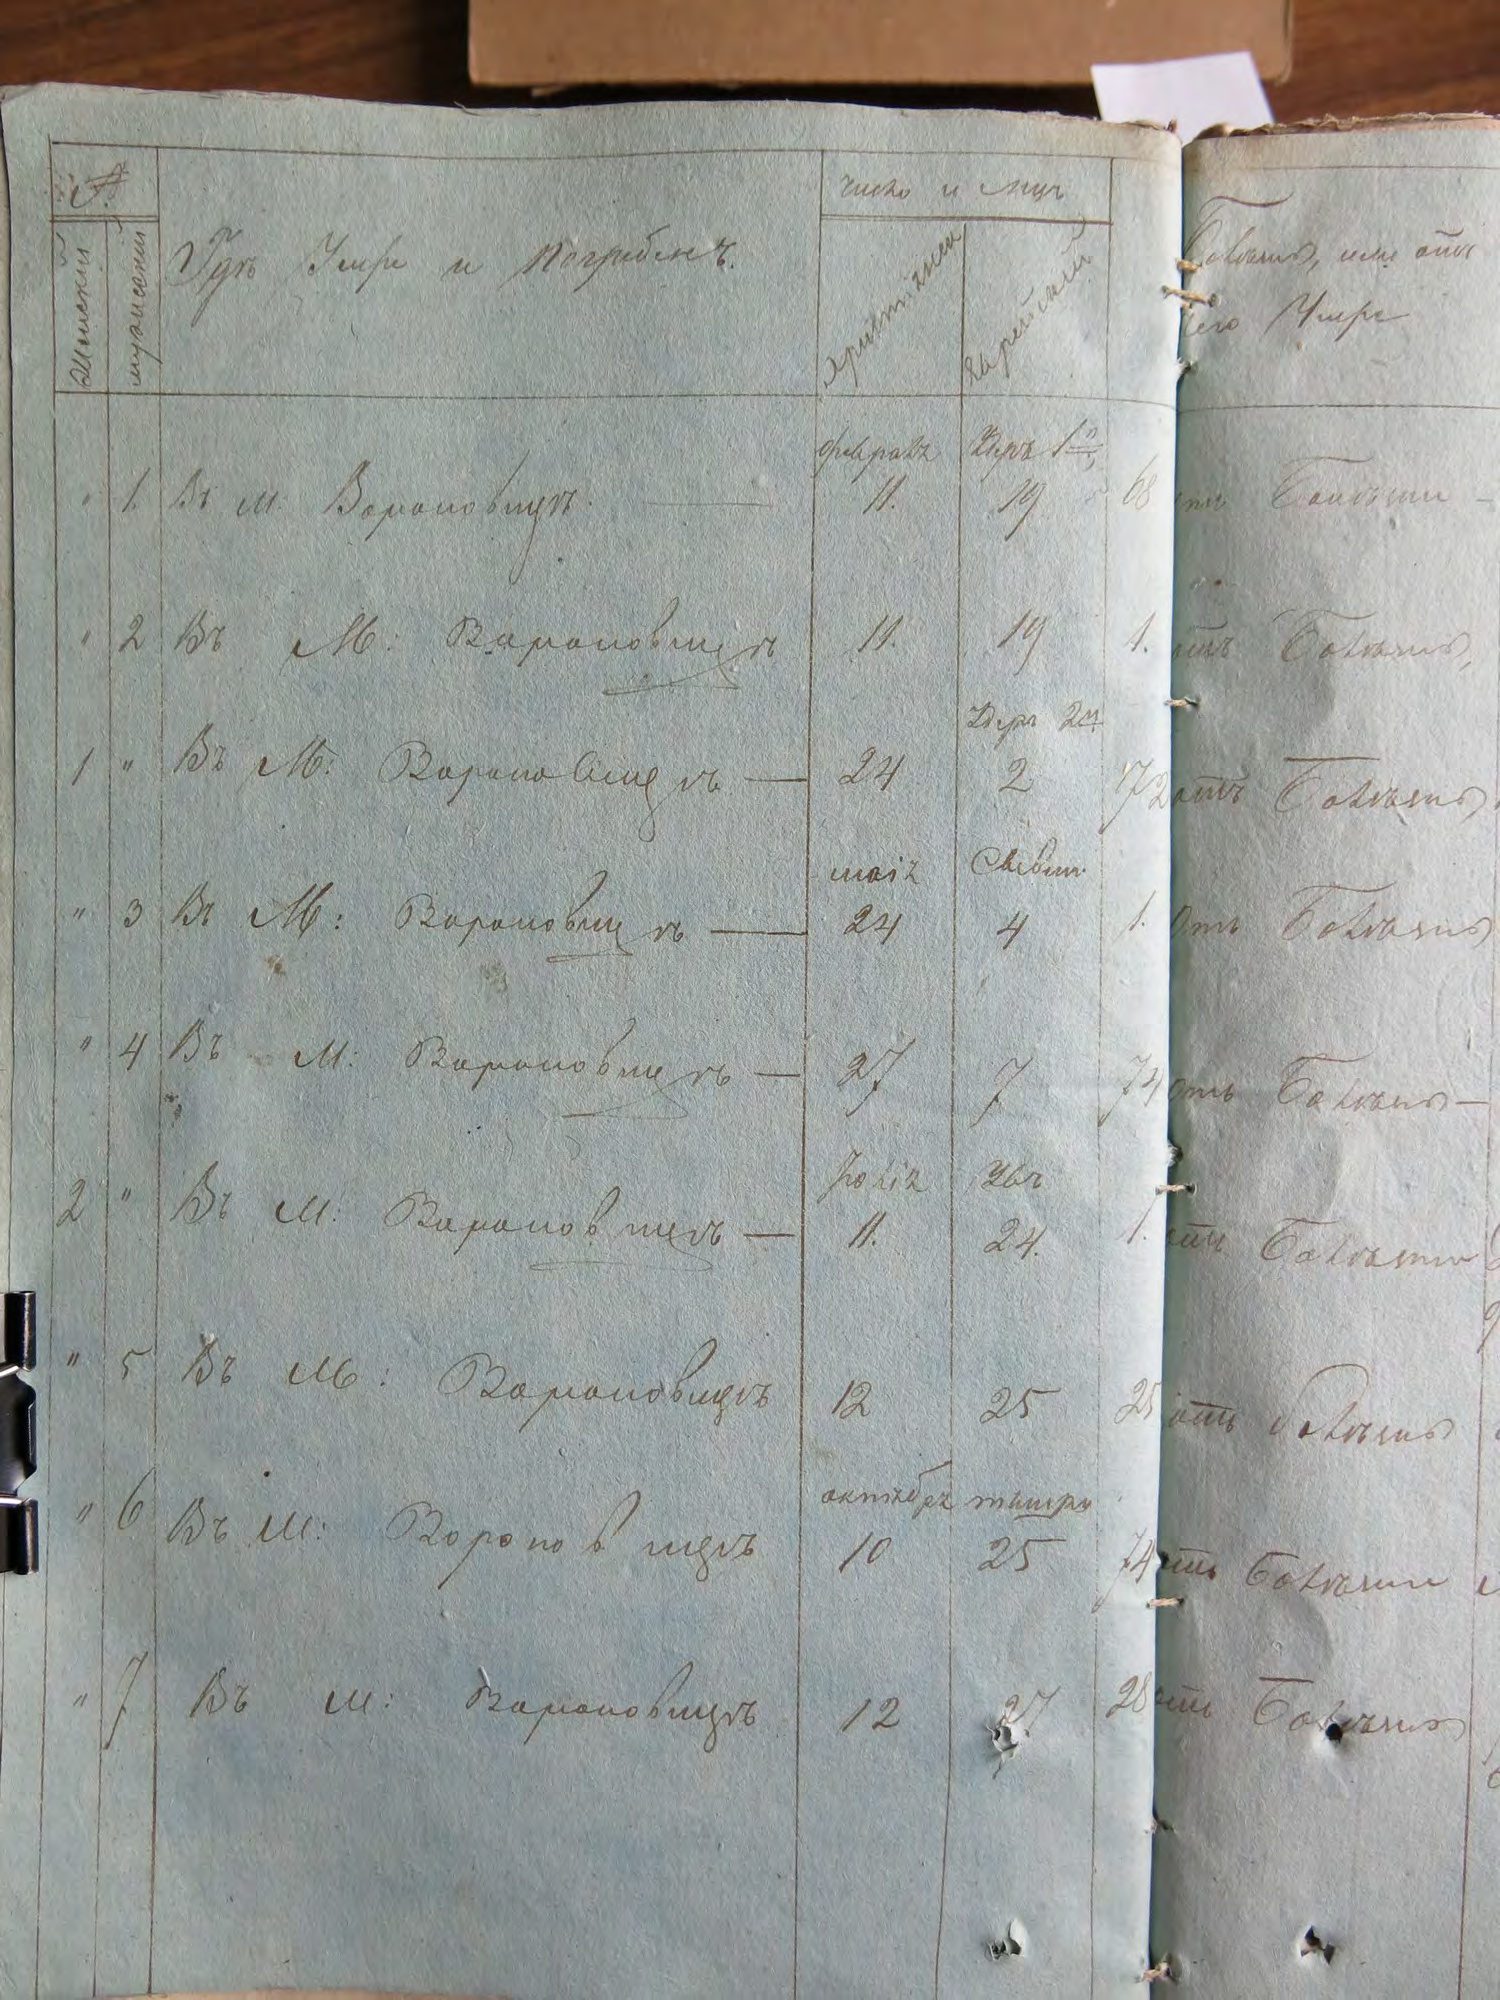 №
Женский
мужеский
Гдѣ Умре и погребенъ.
число и мцъ
христианск
Еврейский
Болѣзнь, или отъ
чего Умре
февраль Адеръ 1й
" 1. Въ М. Вороновицѣ. 11. 19 68 отъ Болѣзни
" 2 Въ М: Вороновицѣ 11. 19 1. отъ Болѣзни,
Адеръ 2й
1 " Въ М: Вороновицѣ — 24 2 72 отъ Болѣзни
маія Сивинъ
" 3 Въ М: Вороновицѣ — 24 4 1. Отъ Болѣзни
" 4 Въ М: Вороновицѣ — 27 7 74 отъ Болѣзни —
Іюлія
2 " Въ М: Вороновицѣ — 11. 24. 1. отъ Болѣзни
" 5 Въ М: Вороновицѣ 12 25 25 отъ Болѣзни
октября тишри
" 6 Въ М: Вороновицѣ 10 25 74 отъ Болѣзни
" 7 Въ М: Вороновицѣ 12 27 28 отъ Болѣзни